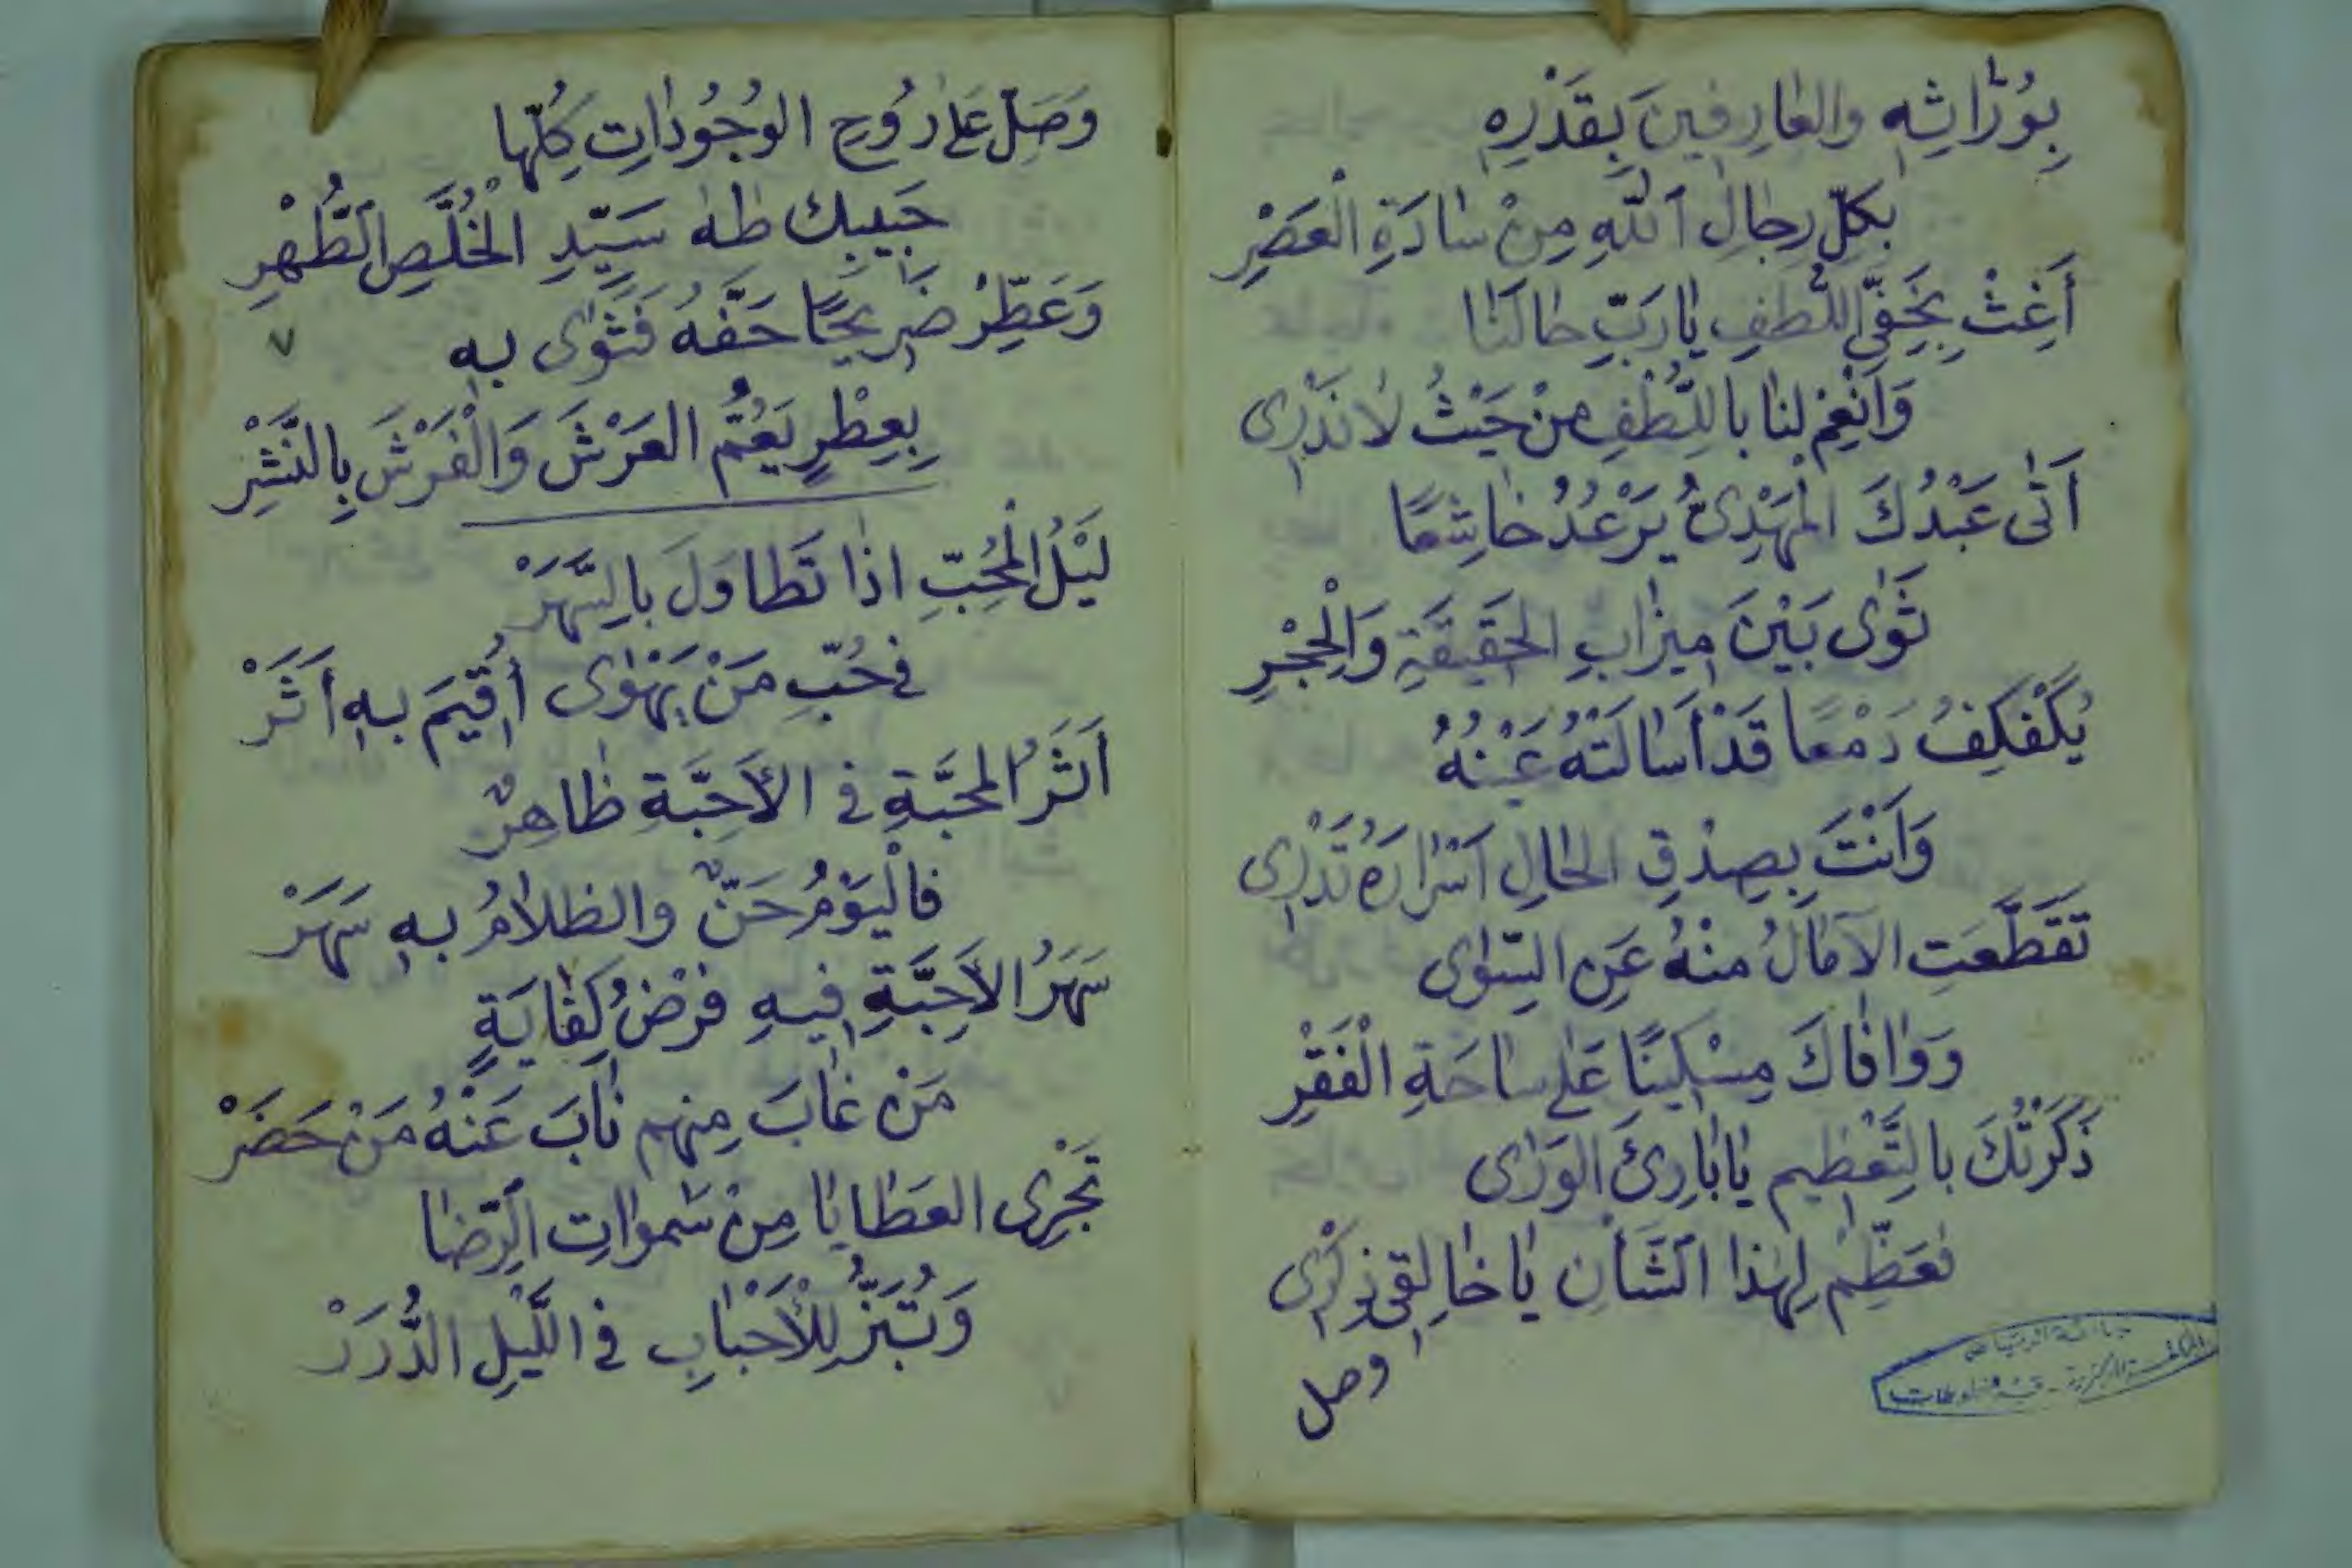 بِوُرَّاثِهِ والعَارِفِينَ بِقَدْرِهِ
بِكلِّ رِجالِ ٱللهِ مِنْ سَادَةِ الْعَصْرِ
أَغِثْ بِخَفِيِّ اللُّطفِ يَا رَبِّ حالَنَا
وَأَنْعِمْ لنَا بِاللُّطْفِ مِنْ حَيْثُ لَا نَدْرِى
أَتَى عَبْدُكَ الْمَهْدِىُّ يَرْعُدُ خَاشِعًا
ثَوَى بَيْنَ مِيزَابِ الحَقِيقَةِ وَالْحِجْرِ
يُكَفْكِفُ دَمْعًا قَدْ أَسَالَتْهُ عَيْنُهُ
وَأَنْتَ بِصِدْقِ الحَالِ أَسْرَارَهُ تَدْرِى
تَقَطَّعَتِ الآمَالُ مِنْهُ عَنِ السِّوَى
وَوَافَاكَ مِسْكِينًا عَلَى سَاحَةِ الْفَقْرِ
ذَكَرْتُكَ بالتَّعْظِيمِ يَا بَارِئَ الوَرَى
فعَظِّمْ لِهَذَا ٱلشَّأْنِ يَا خَالِقِى ذِكْرِى
وصل
جامعة الرياض
المكتبة المركزية - قسم المخطوطات
وَصَلِّ عَلَى رُوحِ الوُجُودَاتِ كُلِّهَا
حَبِيبِكَ طٰهٰ سَيِّدِ الْخُلَّصِ ٱلطُّهْرِ
وَعَطِّرْ ضَرِيحًا حَفَّهُ فَثَوَى بِهِ
٧
بِعِطْرٍ يَعُمُّ العَرْشَ وَالْفَرْشَ بِالنَّشْرِ
لَيْلُ الْمُحِبِّ اذَا تَطَاوَلَ بِالسَّهَرْ
فى حُبِّ مَنْ يَهْوَى أُقِيمَ بِهِ أَثَرْ
أَثَرُ المَحَبَّةِ فى الأَحِبَّةِ ظَاهِرٌ
فَالْيَوْمُ حَنٌّ والظلَامُ بِهِ سَهَرْ
سَهَرُ الأَحِبَّةِ فِيهِ فَرْضُ كِفَايَةٍ
مَنْ غَابَ مِنهم نَابَ عَنْهُ مَنْ حَضَرْ
تَجْرِى العَطَايَا مِنْ سَمٰوَاتِ ٱلرِّضَا
وَتُبَرَّزُ لِلْأَحْبَابِ فى اللَّيْلِ الدُّرَرْ